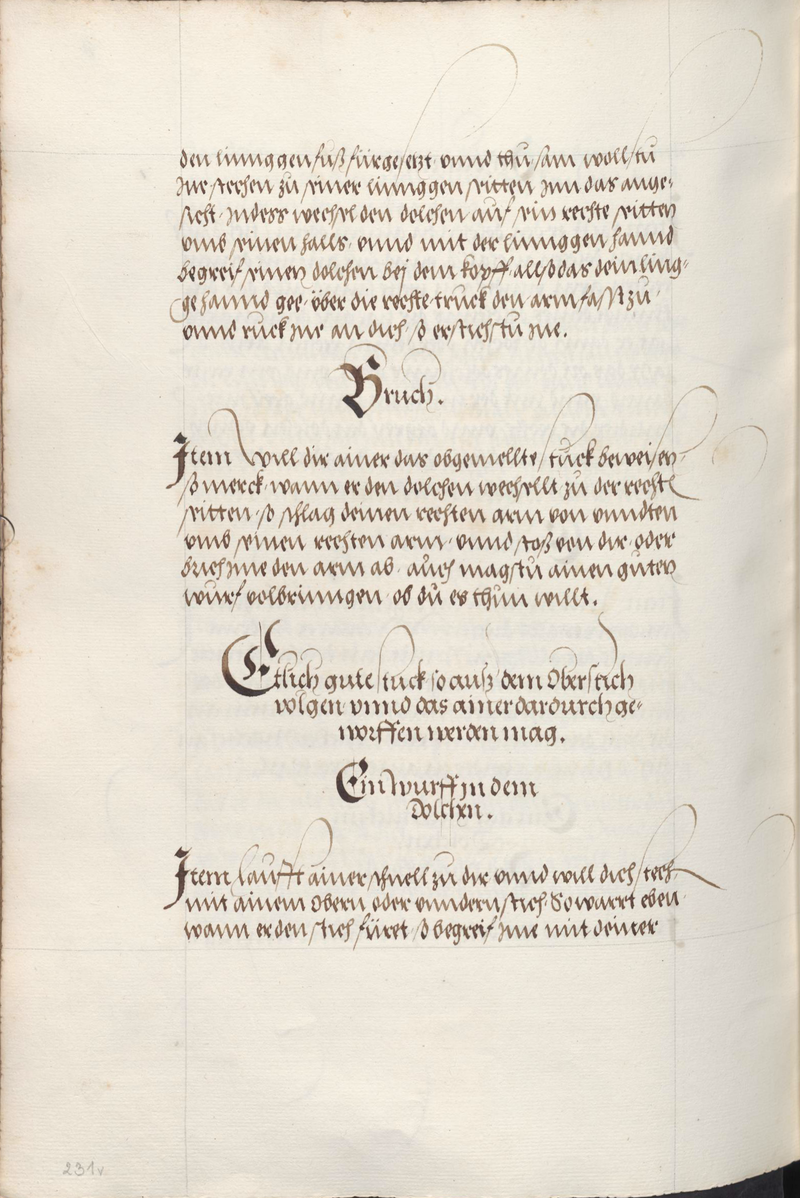 den linnggen fuß für gesetzt vnnd thu sam wollstu
Ime stechen zu seiner linnggen seitten jnn das ange-
sicht jndess wechsl den dolchen auf sein rechte seitten
vmb seinen halls vnnd mit der linnggen hannd
begreif seinen dolchen bej dem kopff allso das dein ling-
ge hannd gee über die rechte truck den arm fasst zu
vnnd ruck jne an dich so erstichstu jne.
Bruch.
Item will dir ainer das obgemellte stuck beweisen
so merck wann er den dolchen wechsllt zu der recht
seitten so schlag deinen rechten arm von vnndten
vmb seinen rechten arm vnnd stoß von dir oder
brich jme den arm ab auch magstu ainen guten
wurf volbrinngen ob du es thun willt.
Etlich gute stuck so auß dem Oberstich
volgen vnnd das ainer dardurch ge-
worffen werden mag.
Ein wurff jn dem
Dolchen.
Item laufft ainer schnell zu dir vnnd will dich stech
mit ainem Obern oder vnndern stich So warrt eben
wann er den stich füret so begreif jne mit deiner
231v